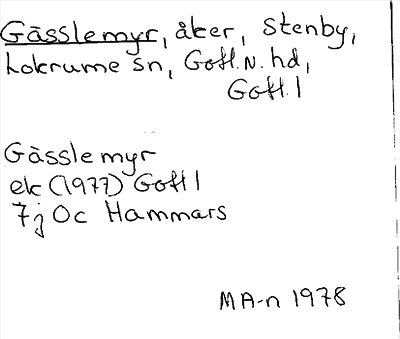 Gässlemyr, åker, Stenby,
Lokrume sn, Gotl. N. hd,
Gotl. l
Gässlemyr
ek (1977) Gotl l
7j Oc Hammars
MA-n 1978